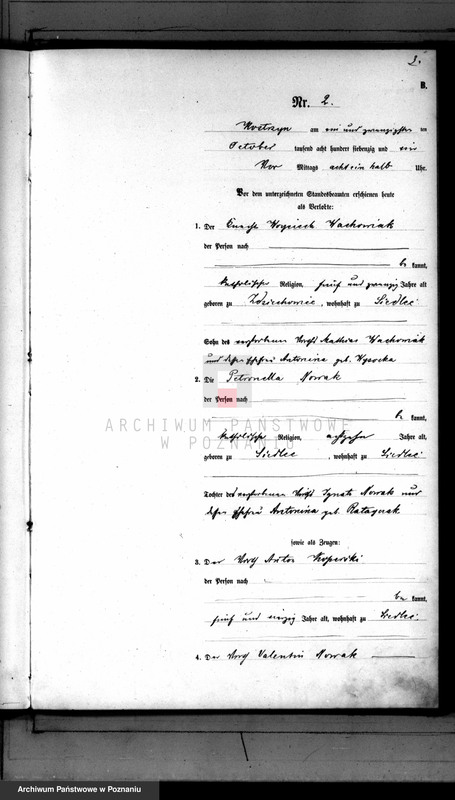 3.
B.
Nr. 2.
Kostrzyn am ein und zwanzigsten ten
October tausend acht hundert siebenzig und
Vor Mittags acht ein halb Uhr.
Vor dem unterzeichneten Standesbeamten erschienen heute
als Verlobte:
1. Der Knecht Woyciech Wachowiak
der Person nach
be kannt,
katholischer Religion, fünf und zwanzig Jahre alt
geboren zu , wohnhaft zu Siedlec
Sohn des verstorbenen Mathias Wachowiak
und dessen Ehefrau Antonina geb. Wysocka
2. Die Petronella Nowak
der Person nach
be kannt,
katholische Religion, achtzehn Jahre alt,
geboren zu Siedlec , wohnhaft zu Siedlec
Tochter des verstorbenen Ignatz Nowak und
dessen Ehefrau Antonina geb. Ratajczak
ARCHIWUM PAŃSTWOWE
W POZNANIU
sowie als Zeugen:
3. Der Anton
der Person nach
be kannt,
fünf und Jahre alt, wohnhaft zu Siedlec
4. Der Valentin Nowak
Archiwum Państwowe w Poznaniu